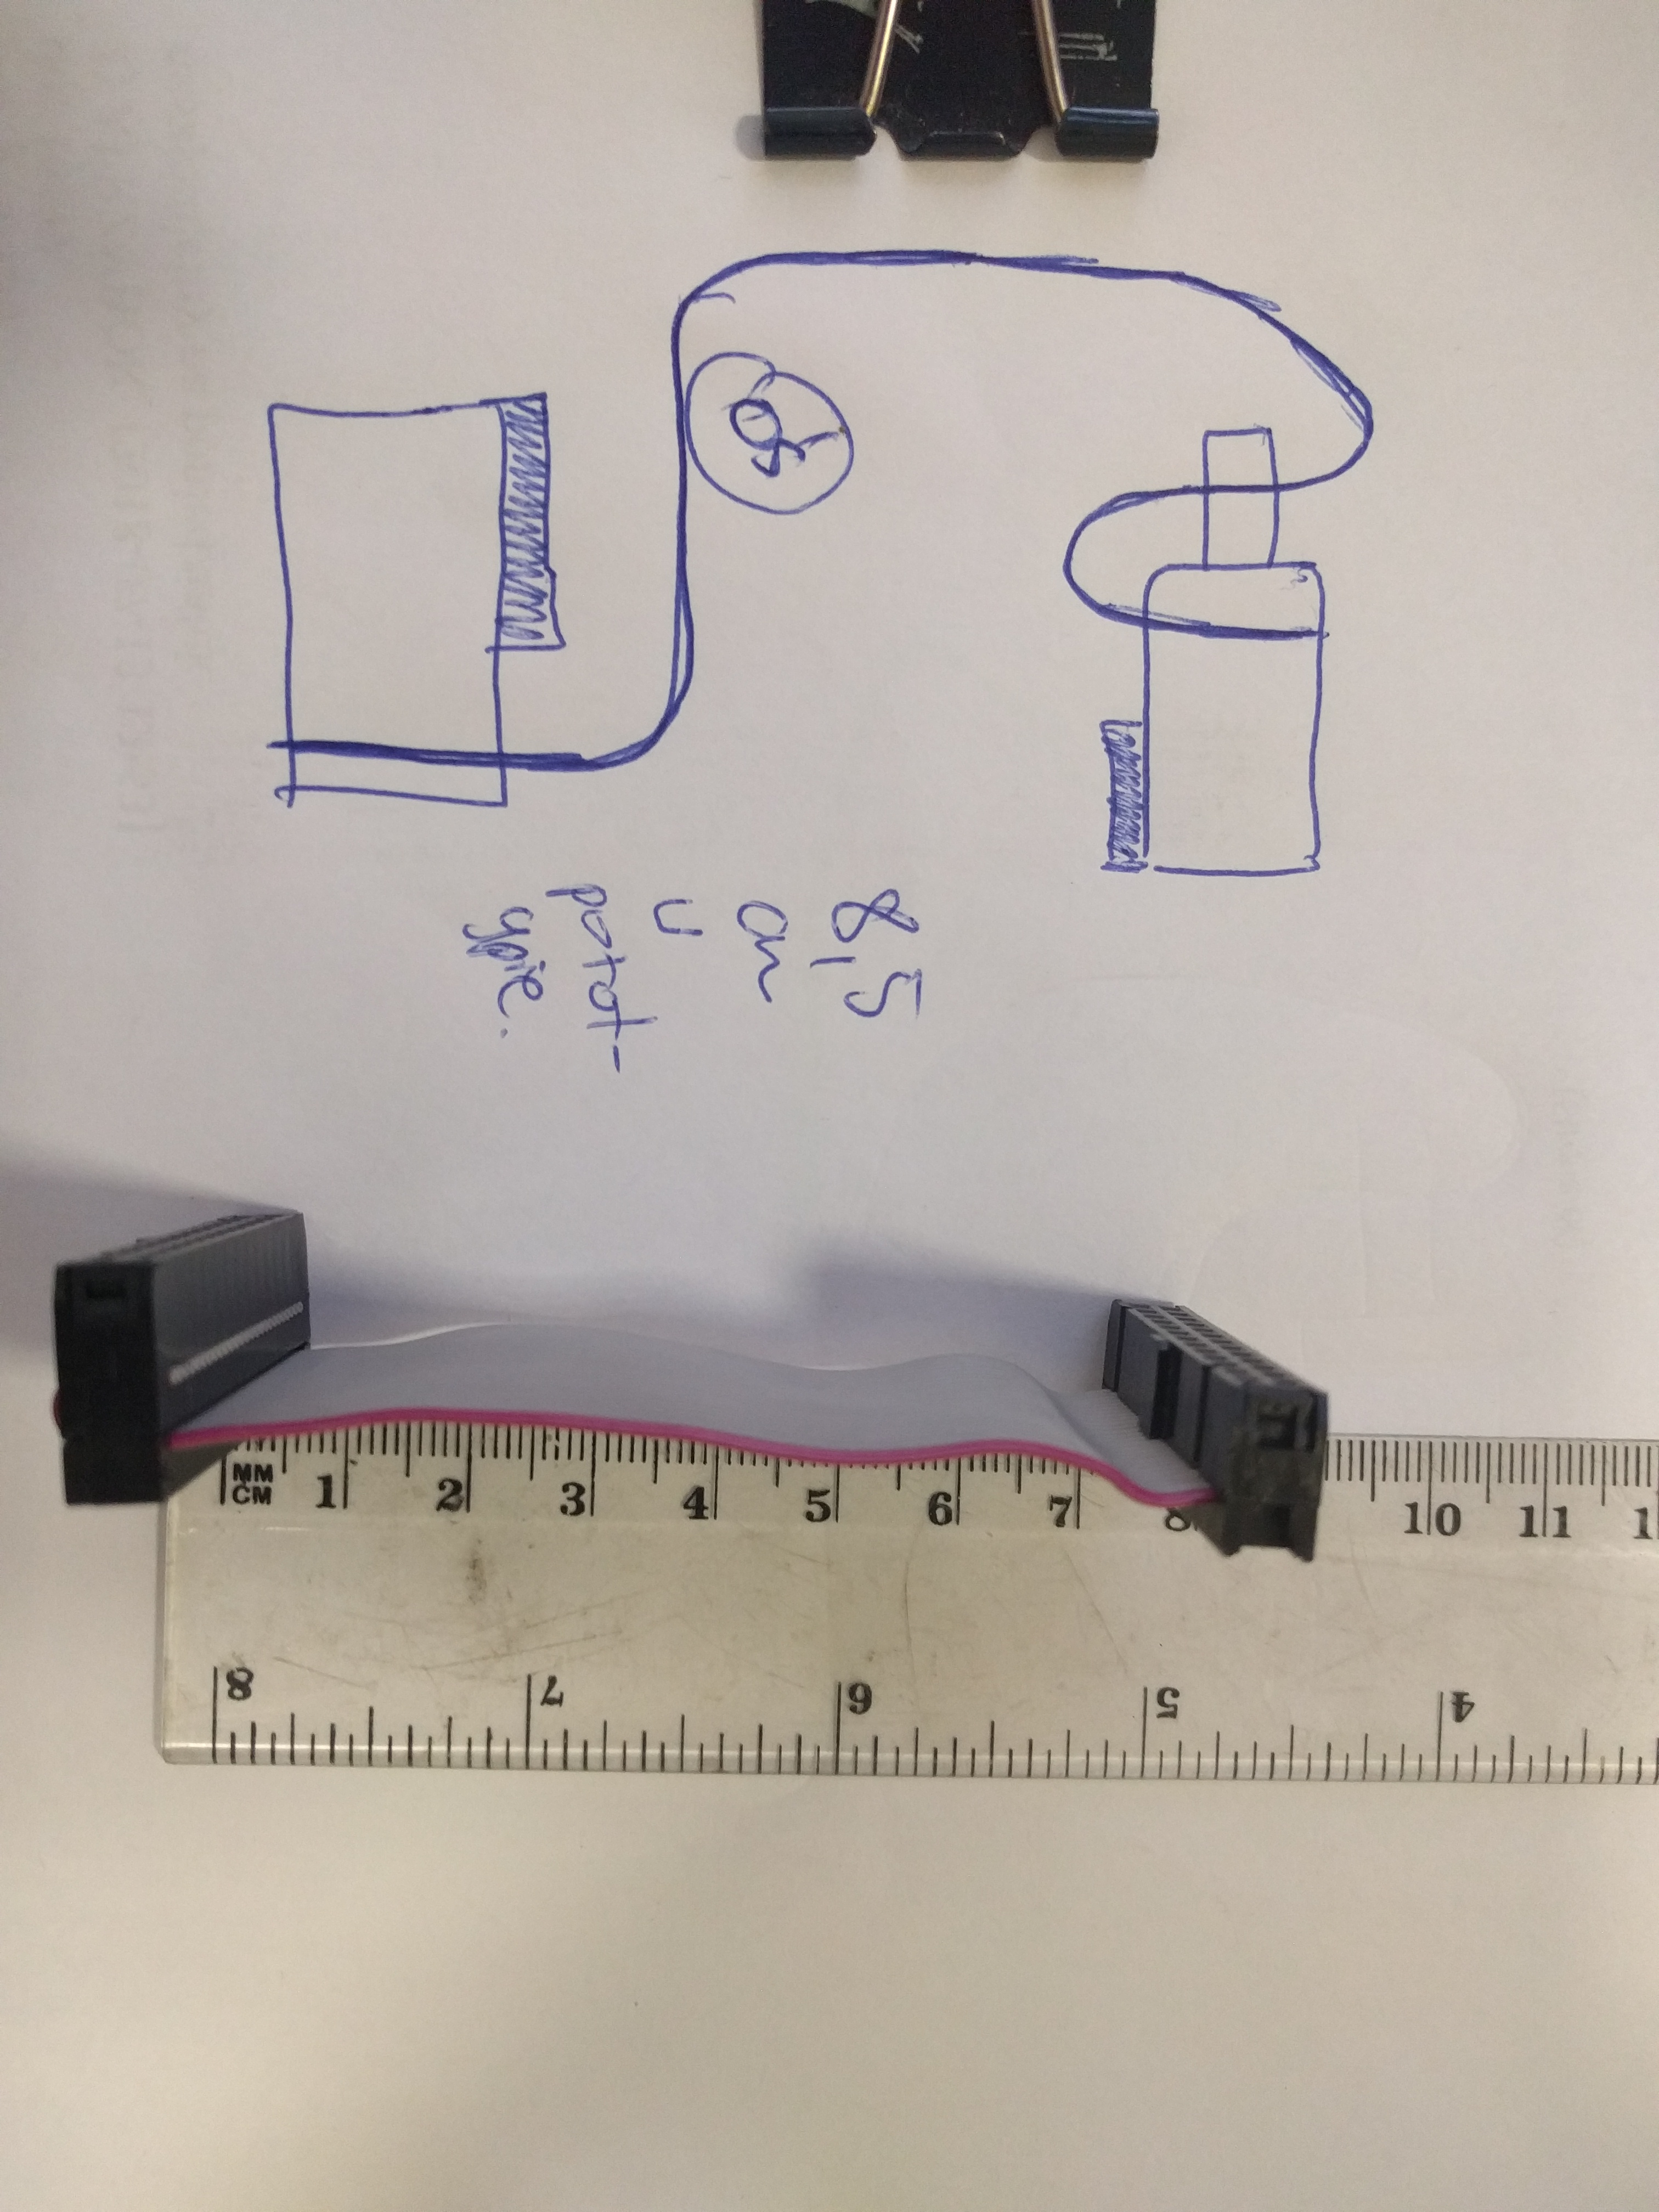 8,5
cm
u
potot-
ypie.
MM
CM 1 2 3 4 5 6 7 8 10 11
8 7 6 5 4